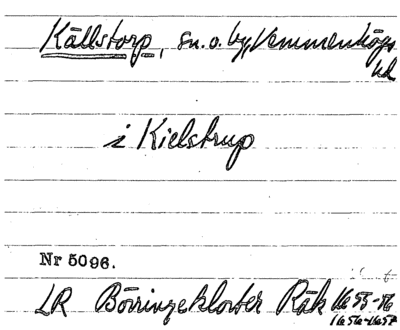 Källstorp, sn. o. by, Vemmenhögs
hd
i Kielstrup
Nr 5096.
LR Börringekloster Räk 1655-56
1656-1657